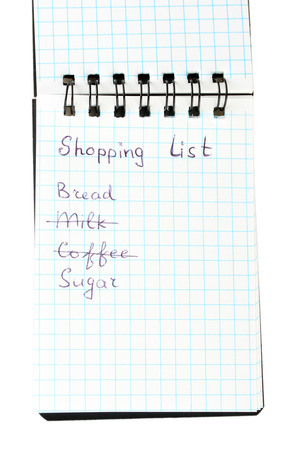 Shopping List
Bread
Milk
Coffee
Sugar